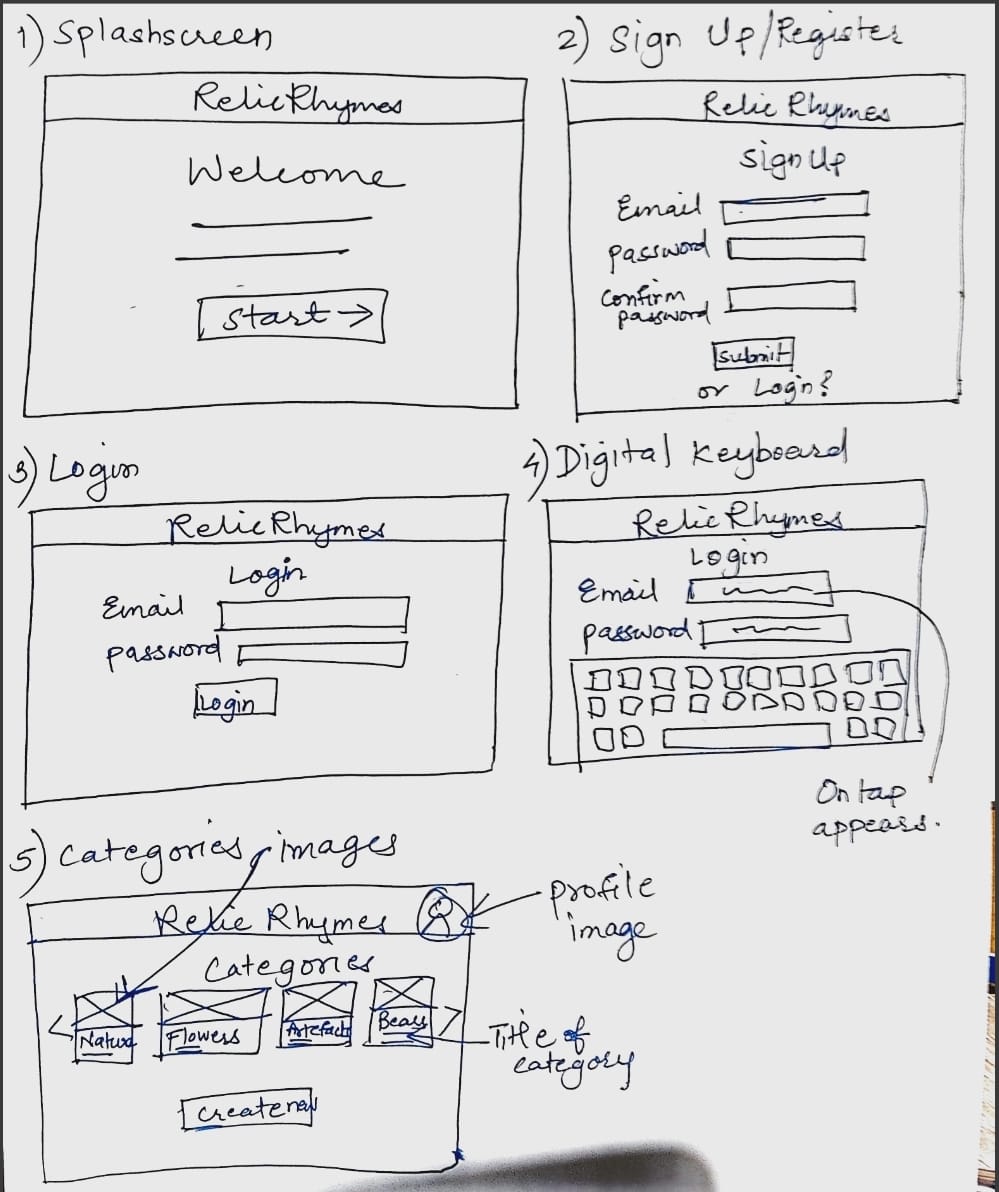 1) Splashscreen
RelicRhymes
Welcome
Start →
2) Sign Up/Register
Relic Rhymes
Sign Up
Email
password
Confirm
password
Submit
or Login?
3) Login
RelicRhymes
Login
Email
password
Login
4) Digital Keyboard
Relic Rhymes
Login
Email
password
On tap
appears.
5) Categories, images
Relic Rhymes
profile
image
Categories
< Nature Flowers Artefacts >
Title of
category
Create new